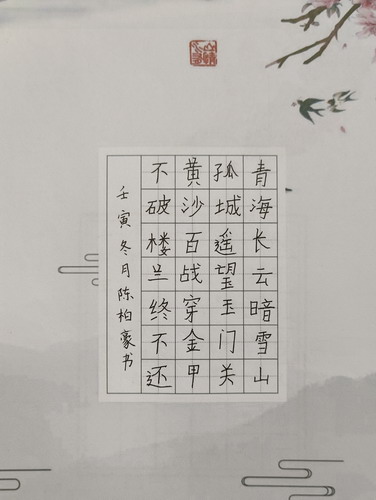 青海长云暗雪山
孤城遥望玉门关
黄沙百战穿金甲
不破楼兰终不还
壬寅冬月陈柏豪书